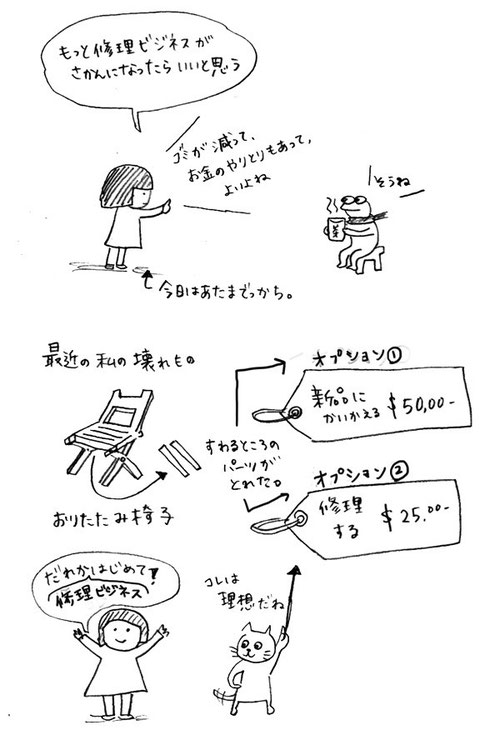 もっと修理ビジネスが
さかんになったらいいと思う
ゴミが減って、
お金のやりとりもあって、
よいよね
そうね
茶
今日はあたまでっかち。
最近の私の壊れもの
おりたたみ椅子
すわるところの
パーツが
とれた。
オプション①
新品に
かいかえる $50,00-
オプション②
修理
する $25.00-
だれかはじめて!
修理ビジネス
コレは
理想だね